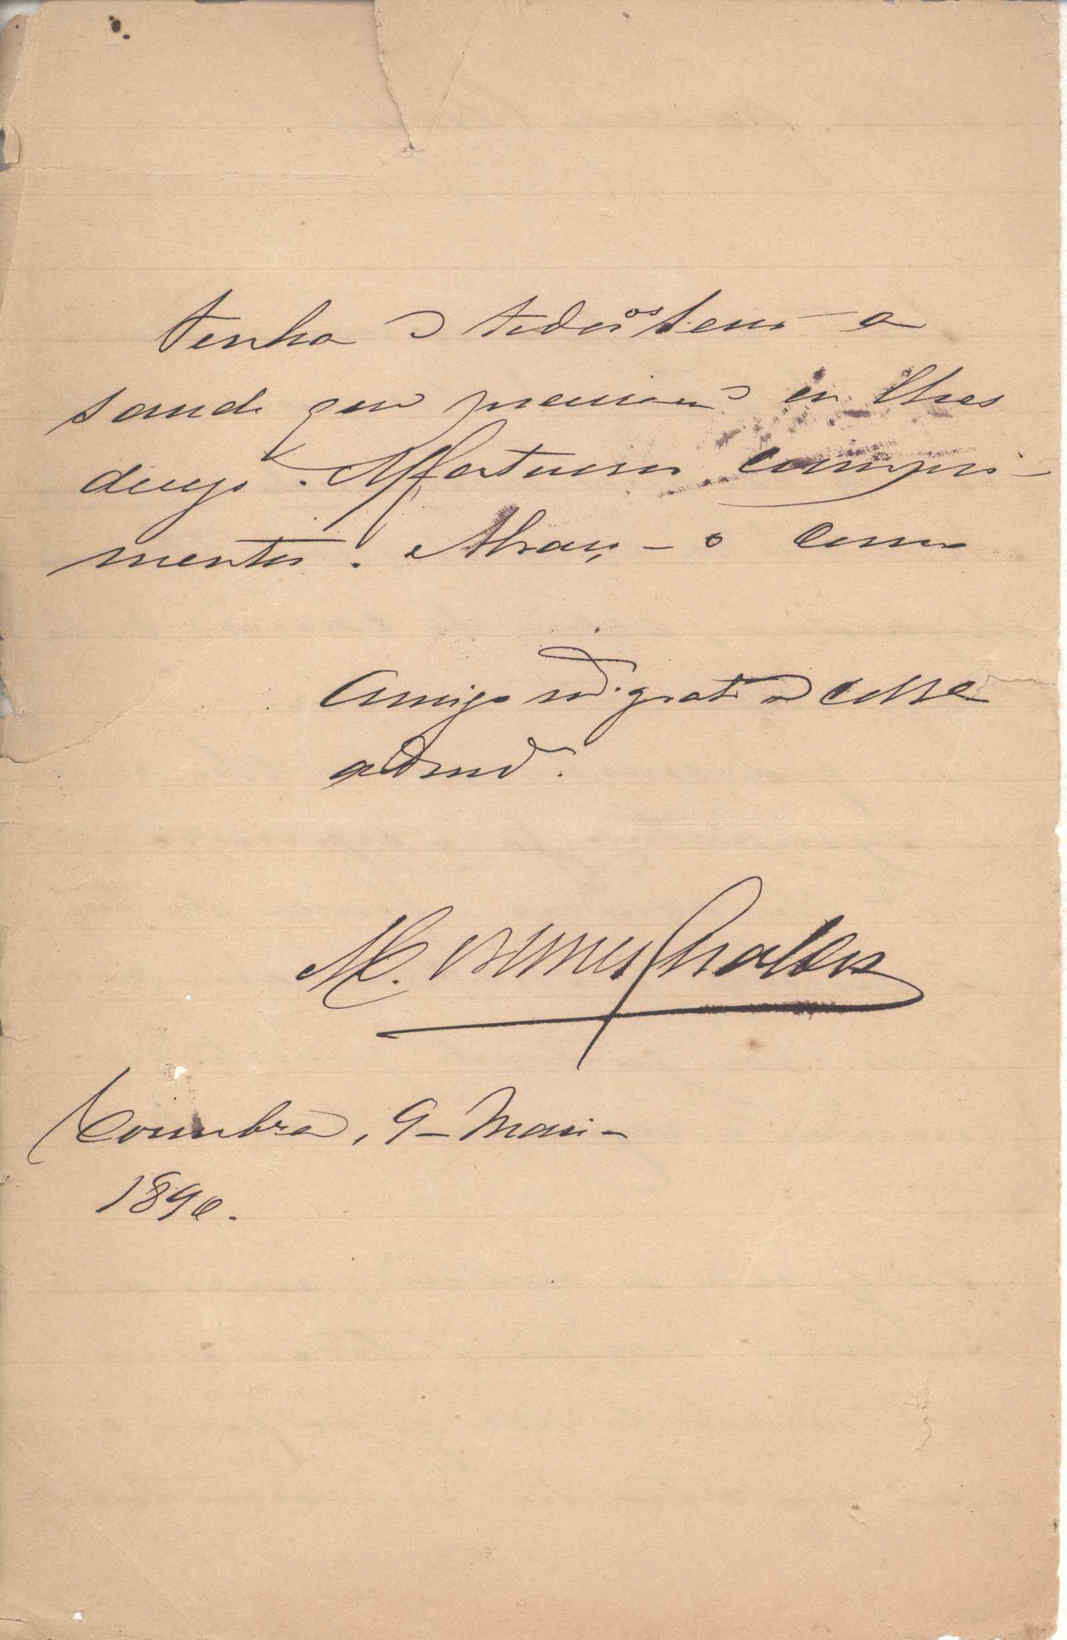 Tenha e todos os seus a
saude que precisam e eu lhes
desejo. Affectuosos cumpri-
mentos. Abraça-o como
Amigo m.to grato e coll.e
adm.dr
M.
Coimbra, 9-Maio-
1890.